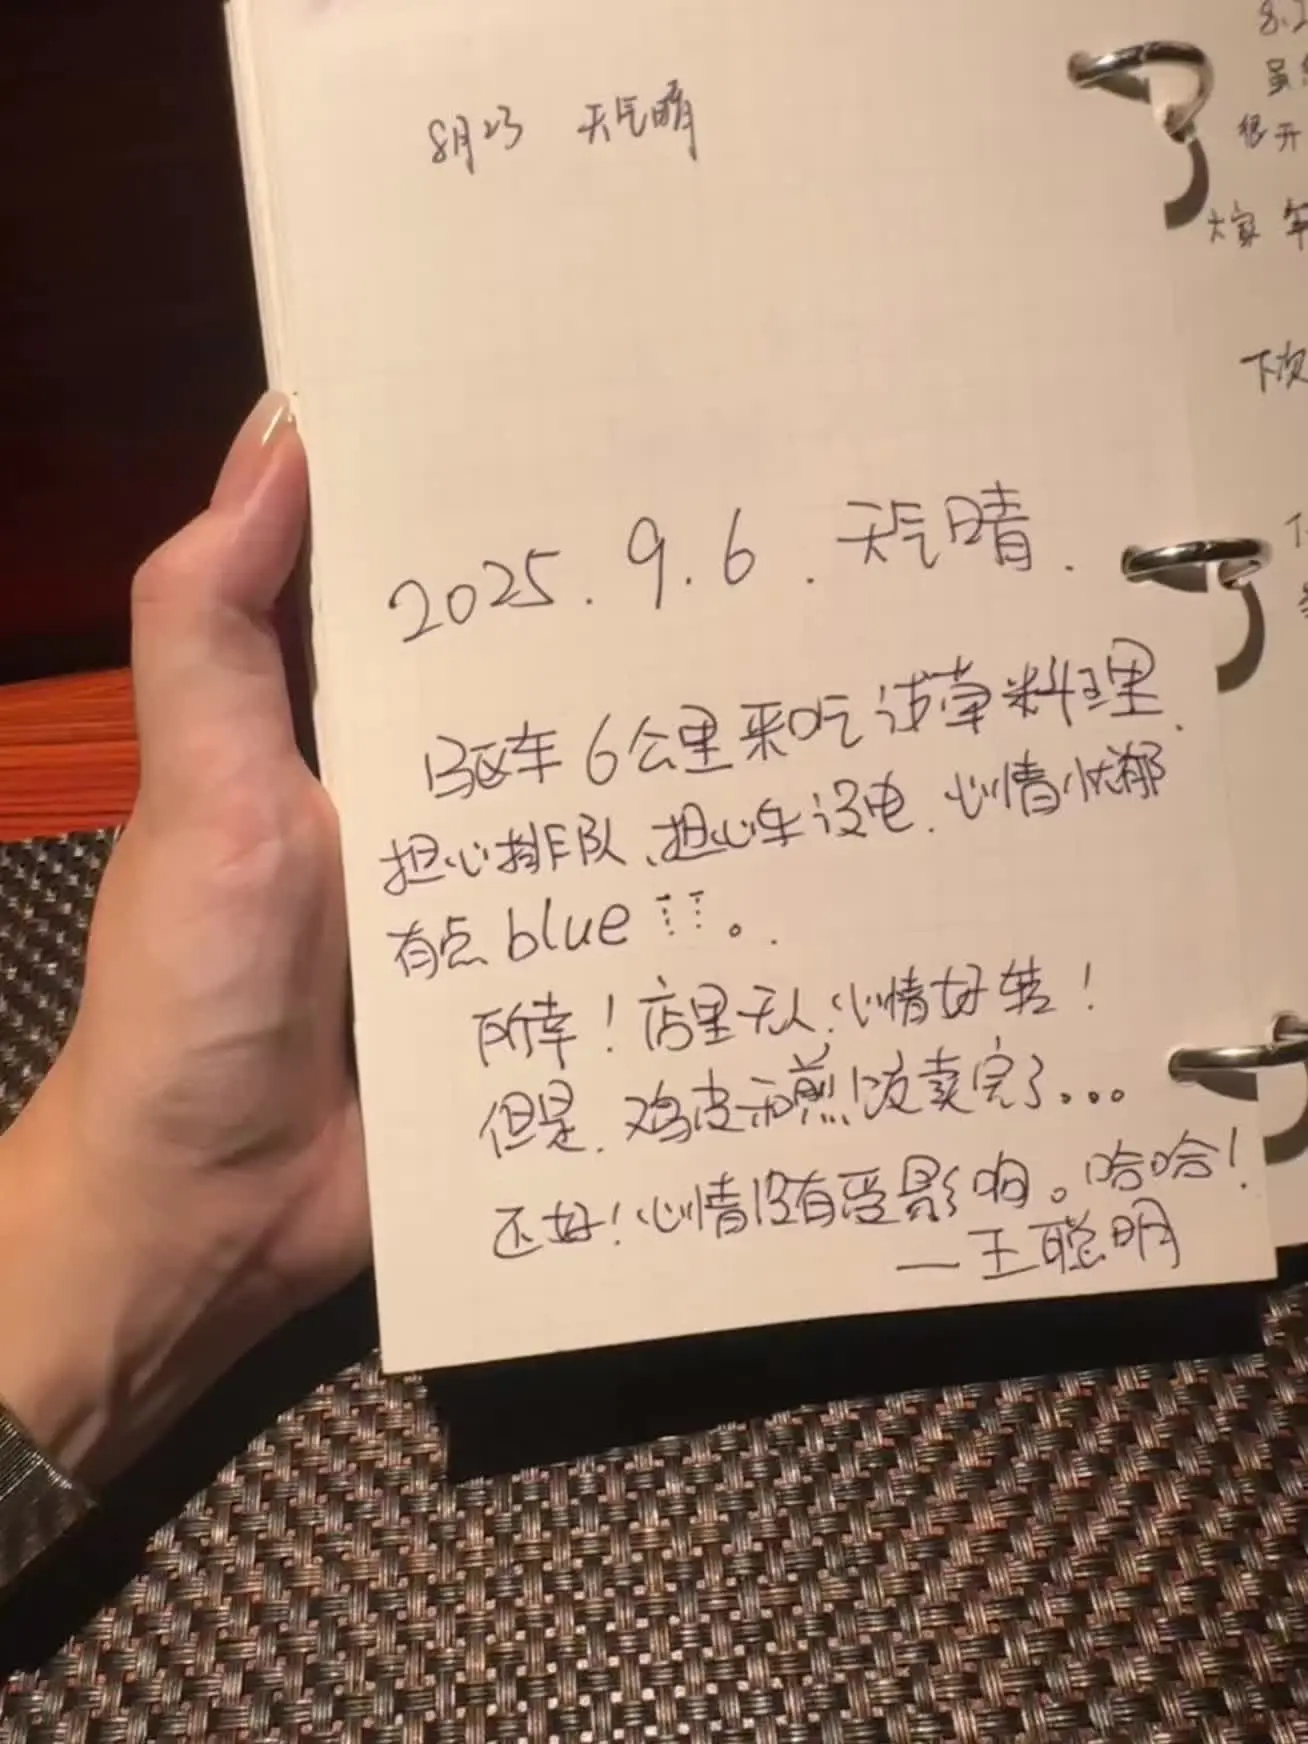 8月23 天气晴
2025.9.6.天气晴.
驱车6公里来吃 料理、
担心排队、担心车没电、心情忧郁
有点blue 。
所幸！店里无人、心情好转！
但是、鸡皮和煎饺卖完了。。。
还好！心情没有受影响。哈哈！
—王聪明
很开
大家
下次